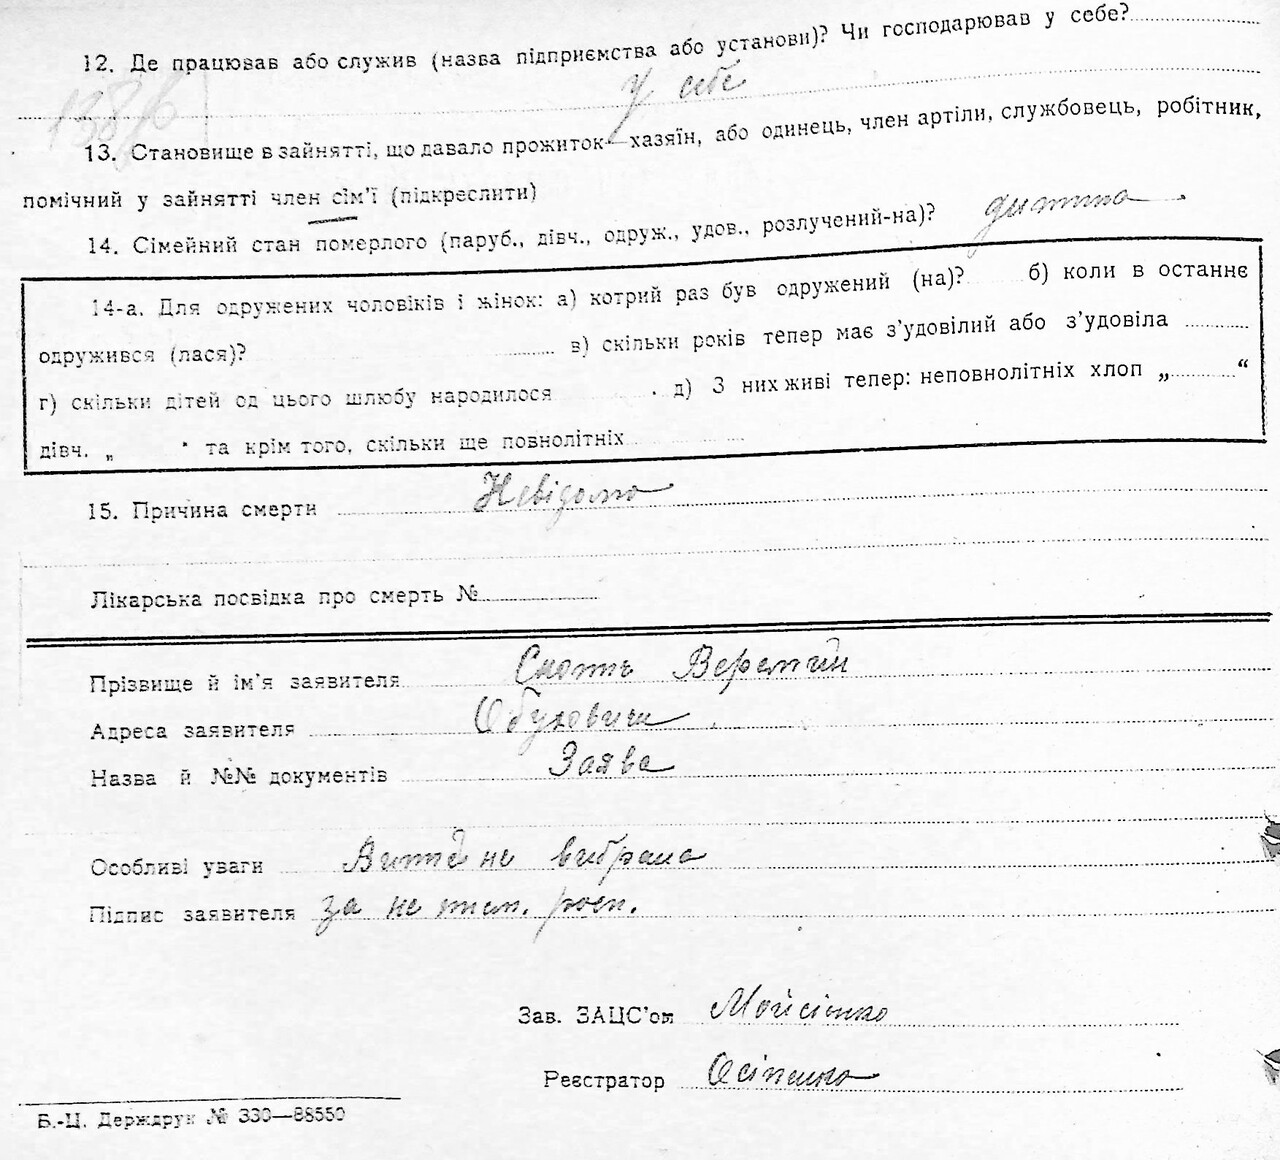 12. Де працював або служив (назва підприємства або установи)? Чи господарював у себе?
У себе
138/6
13. Становище в зайнятті, що давало прожиток—хазяїн, або одинець, член артіли, службовець, робітник,
помічний у зайнятті член сім'ї (підкреслити)
14. Сімейний стан померлого (паруб., дівч., одруж., удов., розлучений-на)? дитина
14-а. Для одружених чоловіків і жінок: а) котрий раз був одружений (на)? б) коли в останнє
одружився (лася)? в) скільки років тепер має з'удовілий або з'удовіла
г) скільки дітей од цього шлюбу народилося д) З них живі тепер: неповнолітніх хлоп „ “
дівч. „ " та крім того, скільки ще повнолітніх
15. Причина смерти Невідомо
Лікарська посвідка про смерть №
Прізвище й ім'я заявителя
Адреса заявителя Обуховичи
Назва й №№ документів Заява
Особливі уваги не вибрана
Підпис заявителя за не пись. росп.
Зав. ЗАЦС'ом Мойсієнко
Реєстратор Осіпенко
Б.-Ц. Держдрук № 330—88550